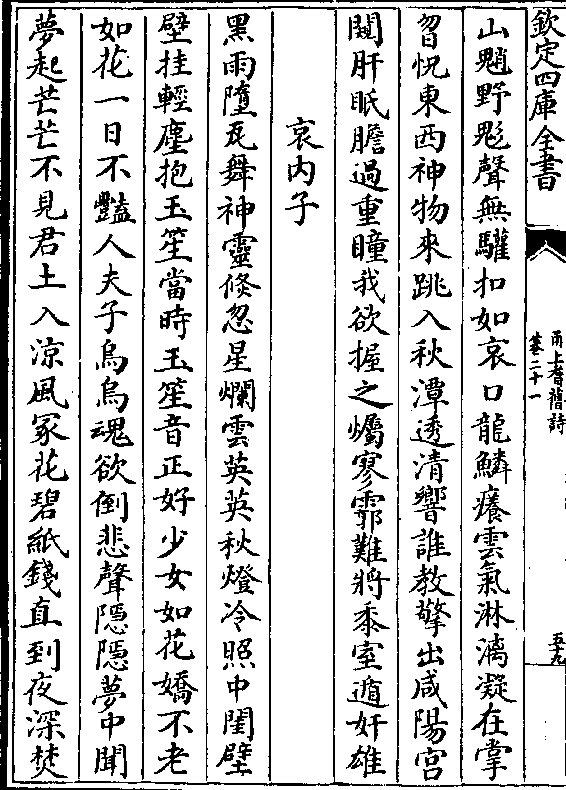 欽定四庫全書
甬上耆舊詩
卷二十一
五九
山魈野鬽聲無驩扣如哀口龍鱗癢雲氣淋漓凝在掌
曶怳東西神物來跳入秋潭透清響誰教擎出咸陽宮
關肝眡膽過重瞳我欲握之爥寥霩難將黍室遁奸雄
哀内子
黑雨墮瓦舞神靈倐忽星爛雲英英秋燈冷照中閨壁
壁挂輕塵抱玉笙當時玉笙音正好少女如花嬌不老
如花一日不豔人夫子烏烏魂欲倒悲聲隱隱夢中聞
夢起芒芒不見君土入凉風冢花碧紙錢直到夜深焚